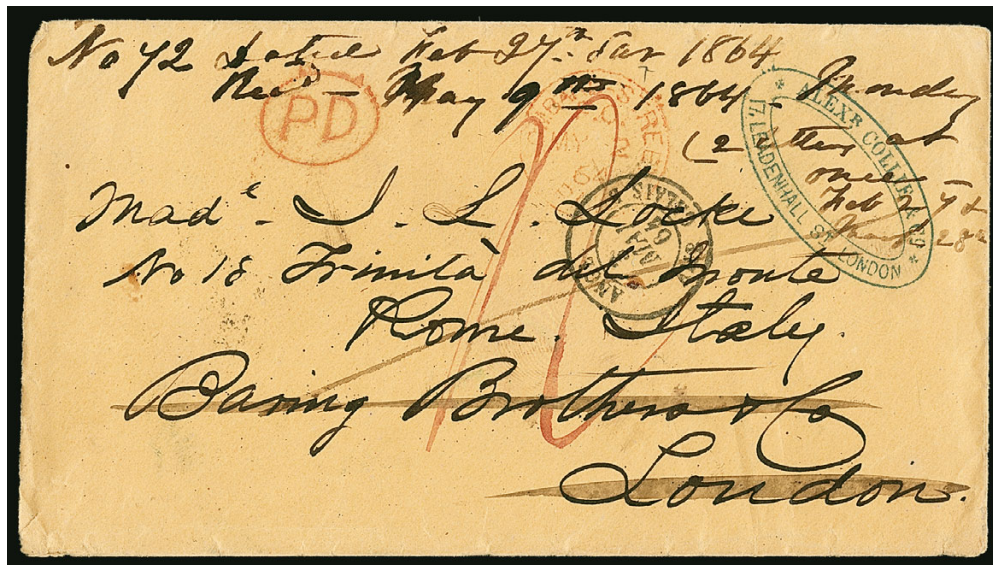 No 72 Dated Feb 27th Sav 1864
Recd - May 9th 1864 - Monday
(2 letters at
once -
Feb 27 &
28th
PD
ALEXR COLLIE & CO
17, LEADENHALL ST. LONDON
CALAIS
ANGL.
MAI
64
Made - J. L. Locke
No 18 Trinità del Monte
Rome. Italy.
Baring Brothers & Co
London.